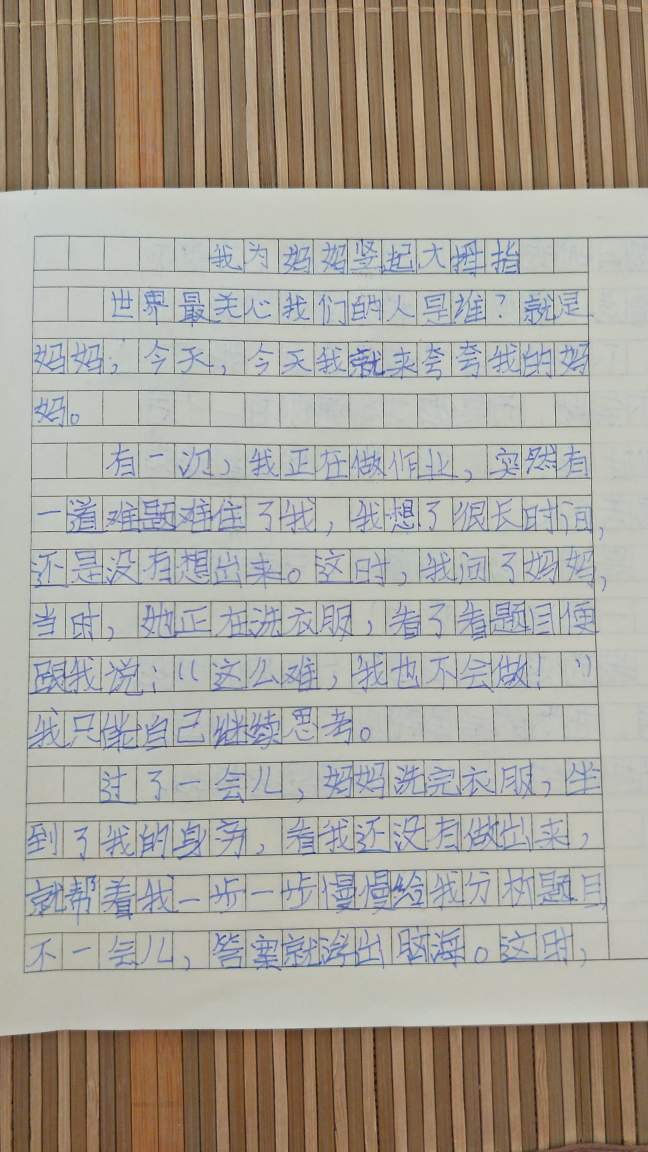 我为妈妈竖起大拇指
世界最关心我们的人是谁？就是
妈妈，今天，今天我就来夸夸我的妈
妈。
有一次，我正在做作业，突然有
一道难题难住了我，我想了很长时间，
还是没有想出来。这时，我问了妈妈，
当时，她正在洗衣服，看了看题目便
跟我说：“这么难，我也不会做！”
我只能自己继续思考。
过了一会儿，妈妈洗完衣服，坐
到了我的身旁，看我还没有做出来，
就帮着我一步一步慢慢给我分析题目
不一会儿，答案就浮出脑海。这时，